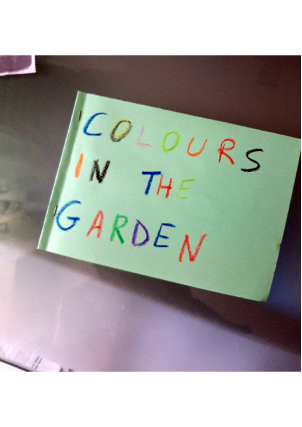 COLOURS
IN THE
GARDEN